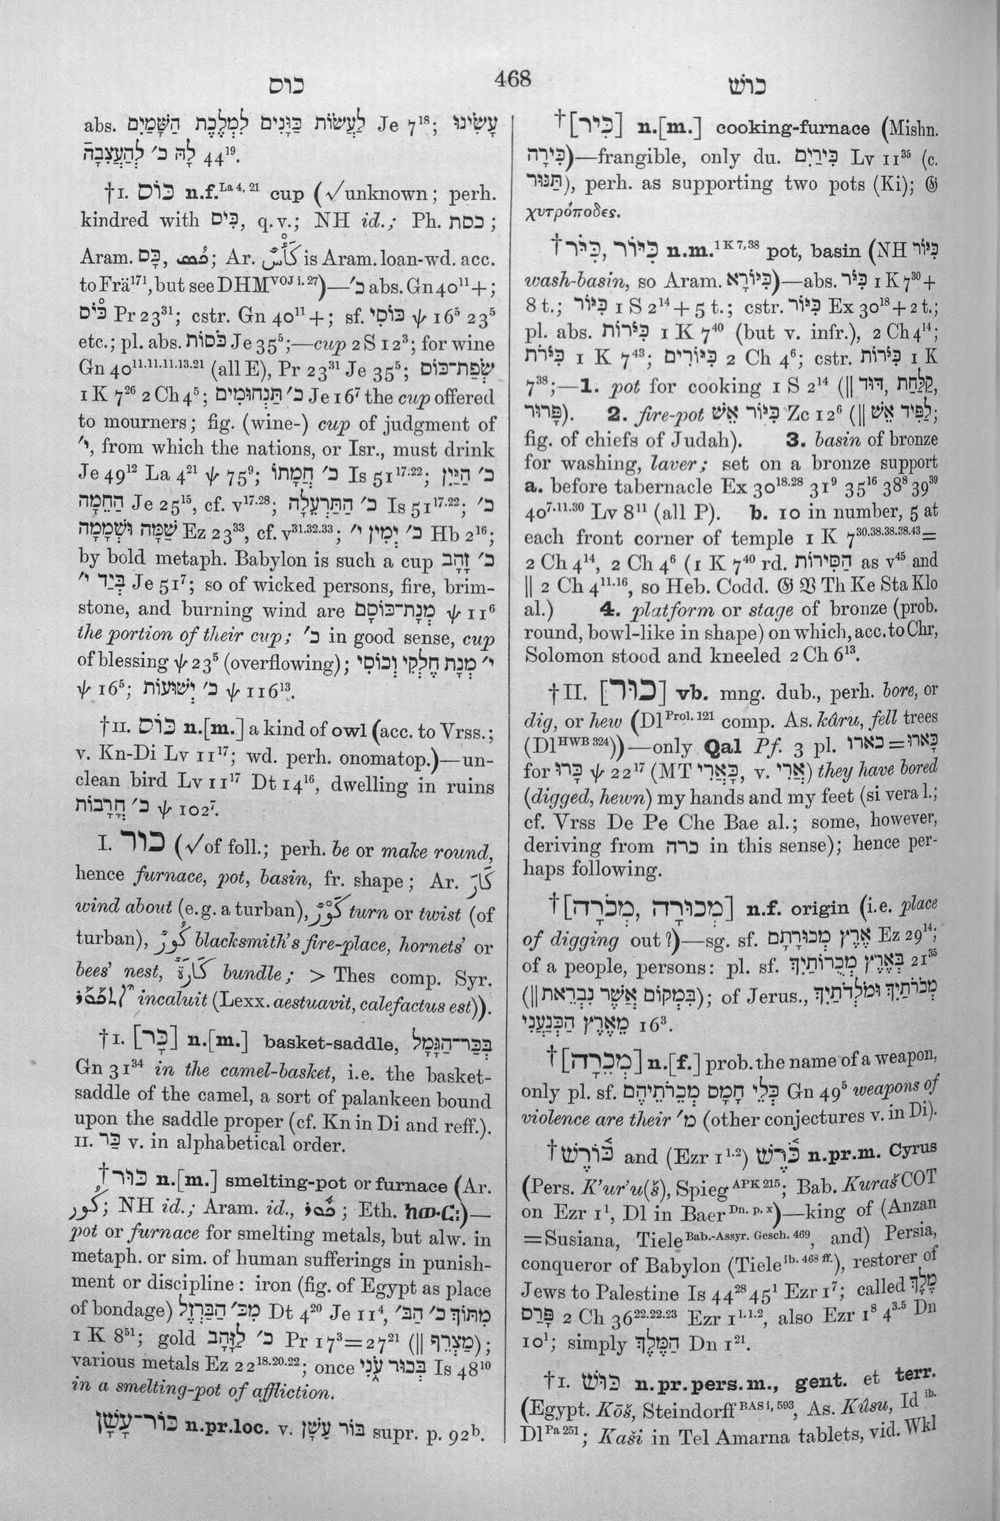 כוס
468
כוש
abs. לַעֲשׂוֹת כַּוָּנִים לִמְלֶכֶת הַשָּׁמַיִם Je 7¹⁸; עָשִׂינוּ
לָהּ כ׳ לְהַעֲצִבָהּ 44¹⁹.
†I. כּוֹס n.f.ᴸᵃ ⁴, ²¹ cup (√unknown; perh.
kindred with כִּיס, q.v.; NH id.; Ph. כסת;
Aram. כָּס, ; Ar. كَأْسٌ is Aram. loan-wd. acc.
to Frä¹⁷¹, but see DHMⱽᴼᴶ ⁱ· ²⁷)—כ׳ abs. Gn 40¹¹+;
כּוֹס Pr 23³¹; cstr. Gn 40¹¹+; sf. כּוֹסִי ψ 16⁵ 23⁵
etc.; pl. abs. כֹּסוֹת Je 35⁵;—cup 2 S 12³; for wine
Gn 40¹¹·¹¹·¹¹·¹³·²¹ (all E), Pr 23³¹ Je 35⁵; שְׂפַת־כּוֹס
1 K 7²⁶ 2 Ch 4⁵; כ׳ תַּנְחוּמִים Je 16⁷ the cup offered
to mourners; fig. (wine-) cup of judgment of
י׳, from which the nations, or Isr., must drink
Je 49¹² La 4²¹ ψ 75⁹; כ׳ חֲמָתוֹ Is 51¹⁷·²²; כ׳ הַיַּיִן
הַחֵמָה Je 25¹⁵, cf. v¹⁷·²⁸; כ׳ הַתַּרְעֵלָה Is 51¹⁷·²²; כ׳
שַׁמָּה וּשְׁמָמָה Ez 23³³, cf. v³¹·³²·³³; כ׳ יְמִין י׳ Hb 2¹⁶;
by bold metaph. Babylon is such a cup כ׳ זָהָב
בְּיַד י׳ Je 51⁷; so of wicked persons, fire, brim-
stone, and burning wind are מְנָת־כּוֹסָם ψ 11⁶
the portion of their cup; כ׳ in good sense, cup
of blessing ψ 23⁵ (overflowing); י׳ מְנָת חֶלְקִי וְכוֹסִי
ψ 16⁵; כ׳ יְשׁוּעוֹת ψ 116¹³.
†II. כּוֹס n.[m.] a kind of owl (acc. to Vrss.;
v. Kn-Di Lv 11¹⁷; wd. perh. onomatop.)—un-
clean bird Lv 11¹⁷ Dt 14¹⁶, dwelling in ruins
כ׳ חֳרָבוֹת ψ 102⁷.
I. כור (√of foll.; perh. be or make round,
hence furnace, pot, basin, fr. shape; Ar. كَارَ
wind about (e.g. a turban), كَوَّرَ turn or twist (of
turban), كُورٌ blacksmith's fire-place, hornets' or
bees' nest, كَارَةٌ bundle; > Thes comp. Syr.
incaluit (Lexx. aestuavit, calefactus est)).
†I. [כַּר] n.[m.] basket-saddle, בְּכַר־הַגָּמָל
Gn 31³⁴ in the camel-basket, i.e. the basket-
saddle of the camel, a sort of palankeen bound
upon the saddle proper (cf. Kn in Di and reff.).
II. כַּר v. in alphabetical order.
†כּוּר n.[m.] smelting-pot or furnace (Ar.
كُور; NH id.; Aram. id., ; Eth. )—
pot or furnace for smelting metals, but alw. in
metaph. or sim. of human sufferings in punish-
ment or discipline: iron (fig. of Egypt as place
of bondage) מִכּ׳ הַבַּרְזֶל Dt 4²⁰ Je 11⁴, מִתּוֹךְ כ׳ הַבּ׳
1 K 8⁵¹; gold כ׳ לַזָּהָב Pr 17³=27²¹ (|| מַצְרֵף);
various metals Ez 22¹⁸·²⁰·²²; once בְּכוּר עֹנִי Is 48¹⁰
in a smelting-pot of affliction.
כּוֹר־עָשָׁן n.pr.loc. v. בּוֹר עָשָׁן supr. p. 92ᵇ.
†[כִּיר] n.[m.] cooking-furnace (Mishn.
כִּירָה)—frangible, only du. כִּירַיִם Lv 11³⁵ (c.
תַּנּוּר), perh. as supporting two pots (Ki); 𝔊
χυτρόποδες.
†כִּיּוֹר, כִּיֹּר n.m.¹ ᴷ ⁷, ³⁸ pot, basin (NH כִּיּוֹר
wash-basin, so Aram. כִּיּוֹרָא)—abs. כִּיֹּר 1 K 7³⁰+
8 t.; כִּיּוֹר 1 S 2¹⁴+5 t.; cstr. כִּיּוֹר Ex 30¹⁸+2 t.;
pl. abs. כִּיֹּרוֹת 1 K 7⁴⁰ (but v. infr.), 2 Ch 4¹⁴;
כִּיֹּרֹת 1 K 7⁴³; כִּיּוֹרִים 2 Ch 4⁶; cstr. כִּיֹּרוֹת 1 K
7³⁸;—1. pot for cooking 1 S 2¹⁴ (|| דּוּד, קַלַּחַת,
פָּרוּר). 2. fire-pot כִּיּוֹר אֵשׁ Zc 12⁶ (|| לַפִּיד אֵשׁ;
fig. of chiefs of Judah). 3. basin of bronze
for washing, laver; set on a bronze support
a. before tabernacle Ex 30¹⁸·²⁸ 31⁹ 35¹⁶ 38⁸ 39³⁹
40⁷·¹¹·³⁰ Lv 8¹¹ (all P). b. 10 in number, 5 at
each front corner of temple 1 K 7³⁰·³⁸·³⁸·³⁸·⁴³=
2 Ch 4¹⁴, 2 Ch 4⁶ (1 K 7⁴⁰ rd. הַסִּירוֹת as v⁴⁵ and
|| 2 Ch 4¹¹·¹⁶, so Heb. Codd. 𝔊 𝔙 Th Ke Sta Klo
al.) 4. platform or stage of bronze (prob.
round, bowl-like in shape) on which, acc. to Chr,
Solomon stood and kneeled 2 Ch 6¹³.
†II. [כּוּר] vb. mng. dub., perh. bore, or
dig, or hew (Dlᴾʳᵒˡ· ¹²¹ comp. As. kâru, fell trees
(Dlᴴᵂᴮ ³²⁴))—only Qal Pf. 3 pl. כָּארוּ=כארו
for כָּרוּ ψ 22¹⁷ (MT כָּאֲרִי, v. אֲרִי) they have bored
(digged, hewn) my hands and my feet (si vera l.;
cf. Vrss De Pe Che Bae al.; some, however,
deriving from כרה in this sense); hence per-
haps following.
†[מְכוּרָה, מְכֹרָה] n.f. origin (i.e. place
of digging out?)—sg. sf. אֶרֶץ מְכוּרָתָם Ez 29¹⁴;
of a people, persons: pl. sf. בְּאֶרֶץ מְכֻרוֹתַיִךְ 21³⁵
(|| בִּמְקוֹם אֲשֶׁר נִבְרֵאת); of Jerus., מְכֹרֹתַיִךְ וּמֹלְדֹתַיִךְ
מֵאֶרֶץ הַכְּנַעֲנִי 16³.
†[מְכֵרָה] n.[f.] prob. the name of a weapon,
only pl. sf. כְּלֵי חָמָס מְכֵרֹתֵיהֶם Gn 49⁵ weapons of
violence are their מ׳ (other conjectures v. in Di).
†כּוֹרֶשׁ and (Ezr 1¹·²) כֹּרֶשׁ n.pr.m. Cyrus
(Pers. K'ur'u(š), Spieg ᴬᴾᴷ ²¹⁵; Bab. Kuraš COT
on Ezr 1¹, Dl in Baer ᴰⁿ· ᵖ· ˣ)—king of (Anzan
=Susiana, Tiele ᴮᵃᵇ·⁻ᴬˢˢʸʳ· ᴳᵉˢᶜʰ· ⁴⁶⁹, and) Persia,
conqueror of Babylon (Tiele ⁱᵇ· ⁴⁶⁸ ᶠᶠ·), restorer of
Jews to Palestine Is 44²⁸ 45¹ Ezr 1⁷; called מֶלֶךְ
פָּרַס 2 Ch 36²²·²²·²³ Ezr 1¹·¹·², also Ezr 1⁸ 4³·⁵ Dn
10¹; simply הַמֶּלֶךְ Dn 1²¹.
†I. כּוּשׁ n.pr.pers.m., gent. et terr.
(Egypt. Kōš, Steindorff ᴮᴬˢ ⁱ, ⁵⁹³, As. Kûsu, Id ⁱᵇ·
Dlᴾᵃ ²⁵¹; Kaši in Tel Amarna tablets, vid. Wkl